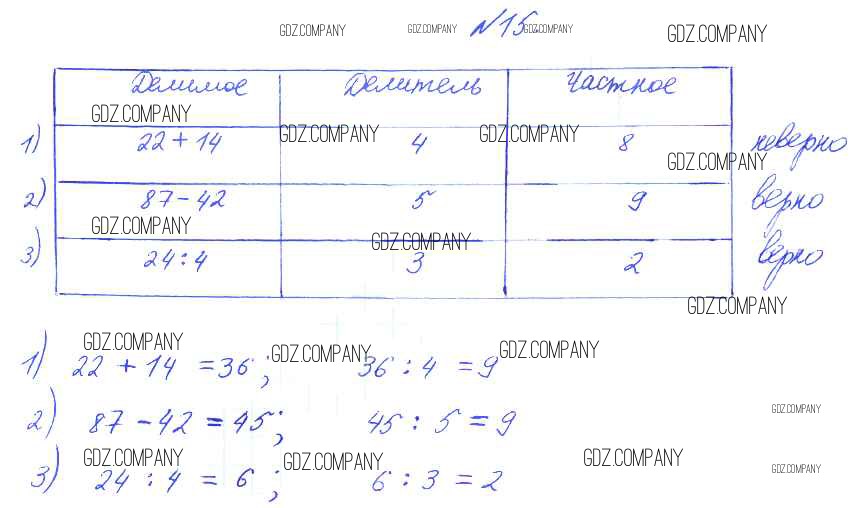 GDZ.COMPANY GDZ.COMPANY №15. GDZ.COMPANY GDZ.COMPANY
Делимое Делитель Частное
GDZ.COMPANY
1) 22 + 14 GDZ.COMPANY 4 GDZ.COMPANY 8 неверно
GDZ.COMPANY
2) 87 - 42 5 9 верно
GDZ.COMPANY
3) 24 : 4 GDZ.COMPANY 3 2 верно
GDZ.COMPANY
GDZ.COMPANY GDZ.COMPANY GDZ.COMPANY
1) 22 + 14 = 36 ; 36 : 4 = 9
GDZ.COMPANY
2) 87 - 42 = 45 ; 45 : 5 = 9
GDZ.COMPANY GDZ.COMPANY GDZ.COMPANY GDZ.COMPANY
3) 24 : 4 = 6 ; 6 : 3 = 2